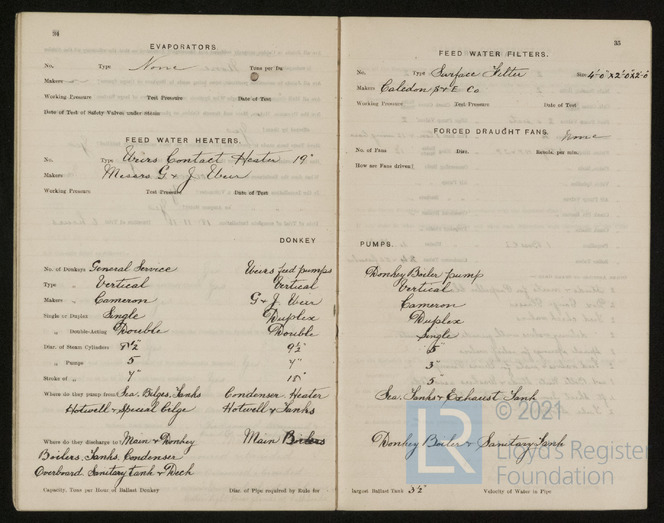 34
EVAPORATORS
No. Type None Tons per Da
Makers
Working Pressure Test Pressure Date of Test
Date of Test of Safety Valves under steam
FEED WATER HEATERS.
No. Type Weirs Contact Heater 19"
Makers Messrs G & J Weir
Working Pressure Test Pressure Date of Test
DONKEY
No. of Donkeys General Service Weirs feed pumps
Type " Vertical Vertical
Makers " Cameron G & J. Weir
Single or Duplex Single Duplex
" Double-Acting Double Double
Diar. of Steam Cylinders 9½"
" Pumps 5 7"
Stroke of " 7" 18"
Where do they pump from Sea. Bilges. Tanks Condenser Heater
Hotwell & Special Bilge Hotwell & Tanks
Where do they discharge to Main & Donkey Main
Boilers. Tanks. Condenser
Overboard. Sanitary tank & Deck
Capacity, Tons per Hour of Ballast Donkey Diar. of Pipe required by Rule for
35
FEED WATER FILTERS.
No. Type Surface Filter Size 4'-0" x 2'-0 x 2'-0
Makers Caledon S & E Co.
Working Pressure Test Pressure Date of Test
FORCED DRAUGHT FANS. None
No. of Fans Diar. Revols. per min.
How are Fans driven?
PUMPS.
Donkey Boiler pump
Vertical
Cameron
Duplex
Single
5"
3"
5"
Sea. Tanks & Exhaust Tank
Donkey Boiler & Sanitary Tank
largest Ballast Tank 3½" Velocity of Water in Pipe
LR
© 2021
Lloyd's Register
Foundation